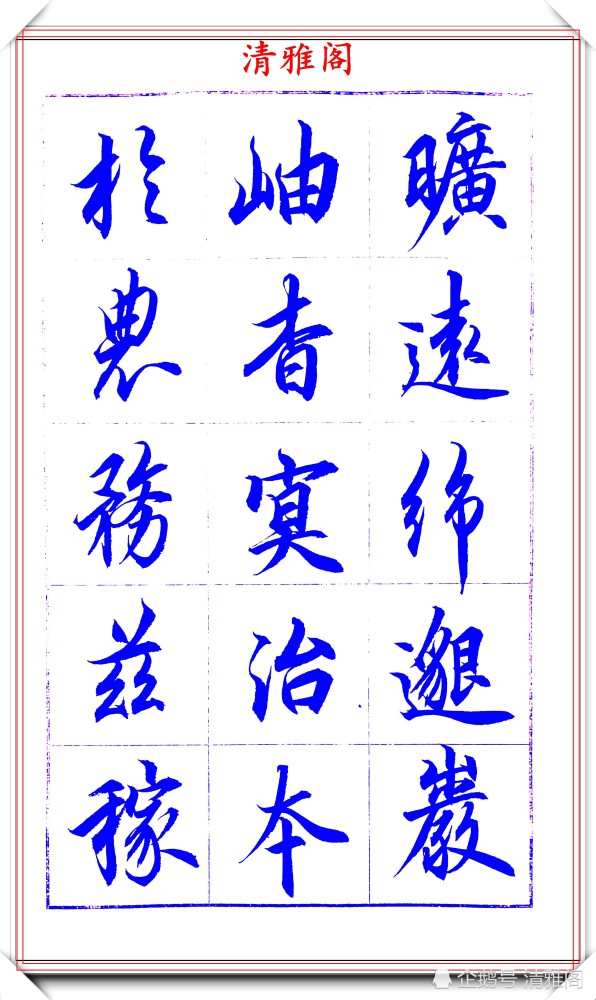 清雅阁
曠遠綿邈巖
岫杳冥治本
於農務茲稼
企鹅号 清雅阁